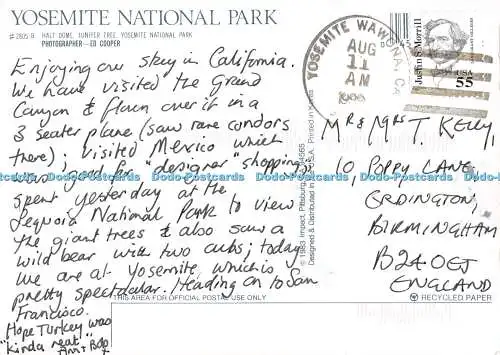 YOSEMITE NATIONAL PARK
#2805 R HALF DOME, JUNIPER TREE, YOSEMITE NATIONAL PARK
PHOTOGRAPHER—ED COOPER
Enjoying our stay in California.
We have visited the Grand
Canyon & flown over it in a
3 seater plane (saw rare condors
there); visited Mexico which
was good for "designer" shopping;
spent yesterday at the
Sequoia National Park to view
the giant trees & also saw a
wild bear with two cubs; today
we are at Yosemite, which is
pretty spectacular. Heading on to San
Francisco.
Hope Turkey was
"kinda neat"
YOSEMITE
AUG
11
AM
Justin S. Morrill
USA
55
© 1983 Impact, Pittsburg,
Designed & Distributed in USA. Printed in Korea
Mr & Mrs T. Kelly,
10, POPPY LANE,
ERDINGTON,
BIRMINGHAM
B24 0EJ
ENGLAND
THIS AREA FOR OFFICIAL POSTAL USE ONLY
RECYCLED PAPER
Dodo-Postcards Dodo-Postcards Dodo-Postcards Dodo-Postcards